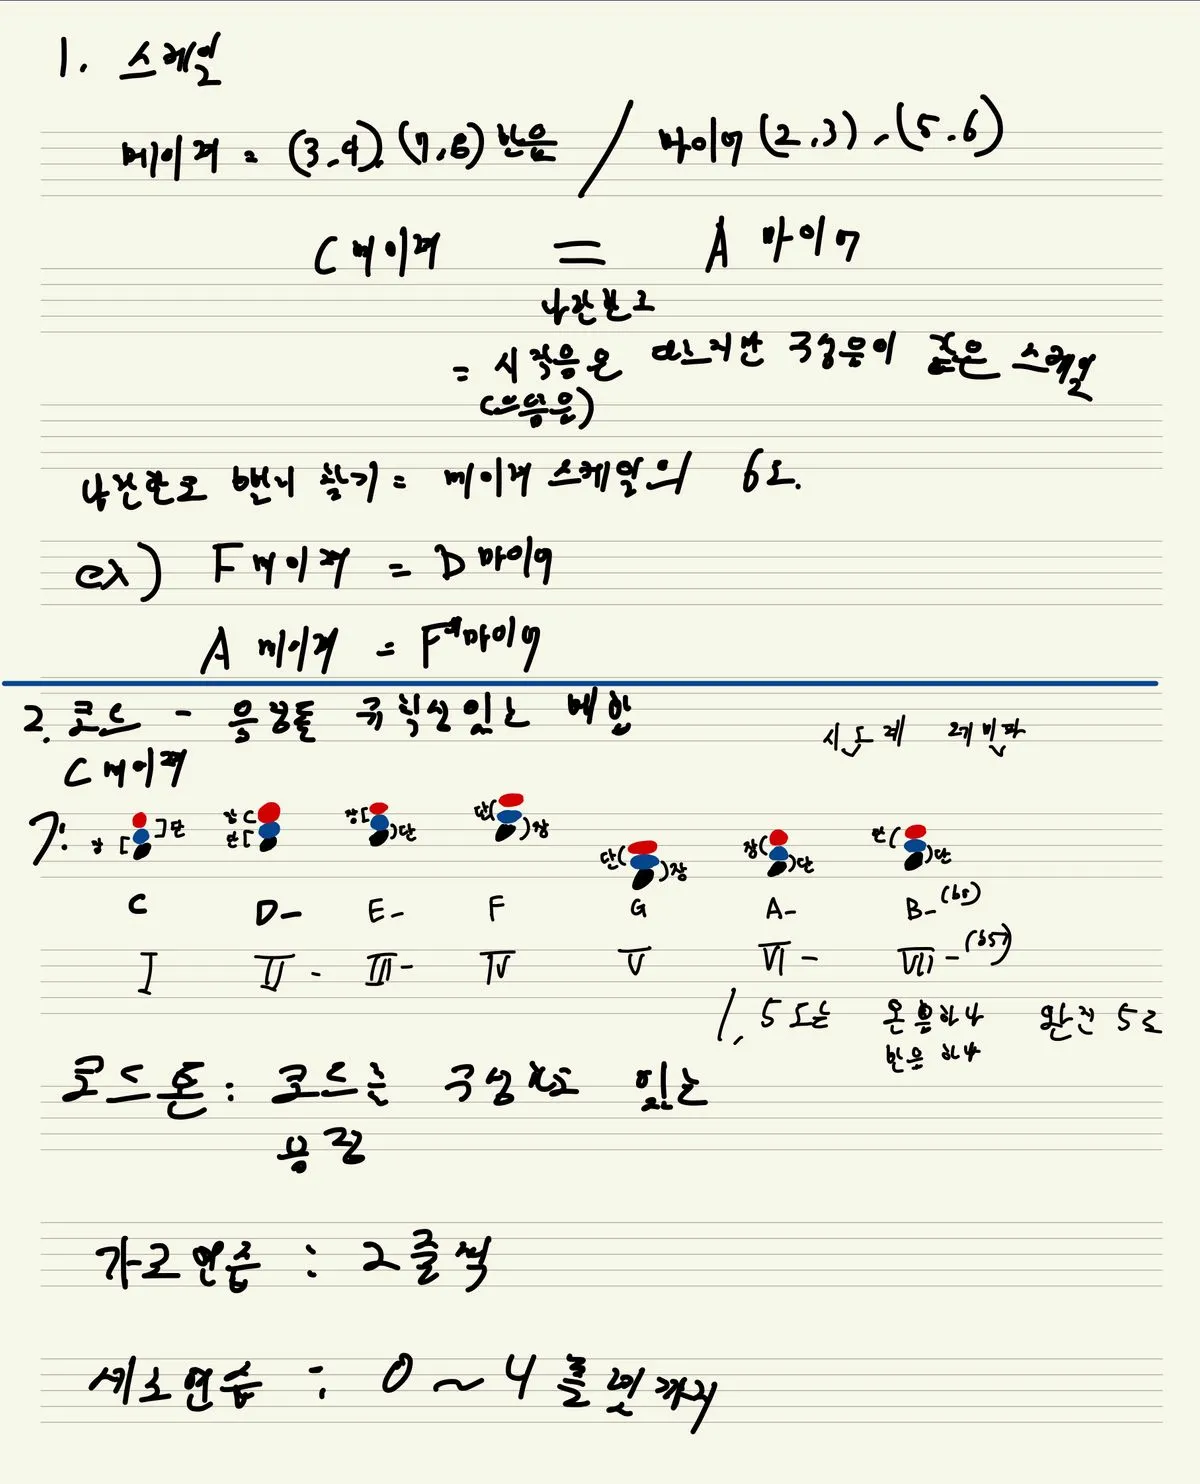 1. 스케일
메이져 = (3,4), (7,8) 반음 / 마이너 (2,3), (5,6)
C 메이져 = A 마이너
나란한조
= 시작음은 다르지만 구성음이 같은 스케일
(으뜸음)
나란한조 빨리 찾기 = 메이져 스케일의 6도.
ex) F 메이져 = D 마이너
A 메이져 = F#마이너
2. 코드 - 음정들 규칙산있는 배합
시도레 레미파
C 메이져
장[ ]단 장[ 단[ 장[ )단 단( )장 단( )장 장( )단 단( )단
C D- E- F G A- B-(b5)
I II- III- IV V VI- VII-(b5)
1. 5도는 온음하나 반음하나 완전 5도
코드톤 : 코드는 구성하고 있는
음
가로연습 : 2줄씩
세로연습 : 0~4플렛까지